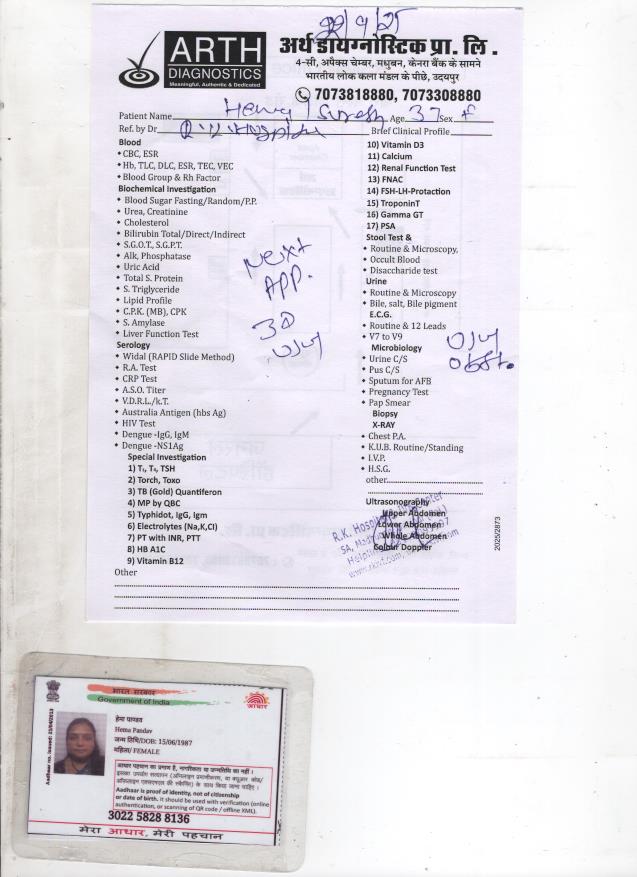 22/9/25
ARTH
DIAGNOSTICS
Meaningful, Authentic & Dedicated
अर्थ डायग्नोस्टिक प्रा. लि.
4-सी, अपैक्स चेम्बर, मधुबन, केनरा बैंक के सामने
भारतीय लोक कला मंडल के पीछे, उदयपुर
7073818880, 7073308880
Patient Name Suresh Age 37 Sex f
Ref. by Dr Brief Clinical Profile
Blood
CBC, ESR
Hb, TLC, DLC, ESR, TEC, VEC
Blood Group & Rh Factor
Biochemical Investigation
Blood Sugar Fasting/Random/P.P.
Urea, Creatinine
Cholesterol
Bilirubin Total/Direct/Indirect
S.G.O.T., S.G.P.T.
Alk, Phosphatase
Uric Acid
Total S. Protein
S. Triglyceride
Lipid Profile
C.P.K. (MB), CPK
S. Amylase
Liver Function Test
Serology
Widal (RAPID Slide Method)
R.A. Test
CRP Test
A.S.O. Titer
V.D.R.L./k.T.
Australia Antigen (hbs Ag)
HIV Test
Dengue -IgG, IgM
Dengue -NS1Ag
Special Investigation
1) T₃, T₄, TSH
2) Torch, Toxo
3) TB (Gold) Quantiferon
4) MP by QBC
5) Typhidot, IgG, Igm
6) Electrolytes (Na,K,Cl)
7) PT with INR, PTT
8) HB A1C
9) Vitamin B12
Other
10) Vitamin D3
11) Calcium
12) Renal Function Test
13) FNAC
14) FSH-LH-Protaction
15) TroponinT
16) Gamma GT
17) PSA
Stool Test &
Routine & Microscopy,
Occult Blood
Disaccharide test
Urine
Routine & Microscopy
Bile, salt, Bile pigment
E.C.G.
Routine & 12 Leads
V7 to V9
Microbiology
Urine C/S
Pus C/S
Sputum for AFB
Pregnancy Test
Pap Smear
Biopsy
X-RAY
Chest P.A.
K.U.B. Routine/Standing
I.V.P.
H.S.G.
other
Ultrasonography
Upper Abdomen
Lower Abdomen
Whole Abdomen
Colour Doppler
Next
APP.
3D
USG
USG
obst.
R.K. Hospital
2025/2873
भारत सरकार
Government of India
आधार
Aadhaar no. issued: 23/04/2013
हेमा पाण्डव
Hema Pandav
जन्म तिथि/DOB: 15/06/1987
महिला/ FEMALE
आधार पहचान का प्रमाण है, नागरिकता या जन्मतिथि का नहीं।
इसका उपयोग सत्यापन (ऑनलाइन प्रमाणीकरण, या क्यूआर कोड/
ऑफलाइन एक्सएमएल की स्कैनिंग) के साथ किया जाना चाहिए।
Aadhaar is proof of identity, not of citizenship
or date of birth. It should be used with verification (online
authentication, or scanning of QR code / offline XML).
3022 5828 8136
मेरा आधार, मेरी पहचान